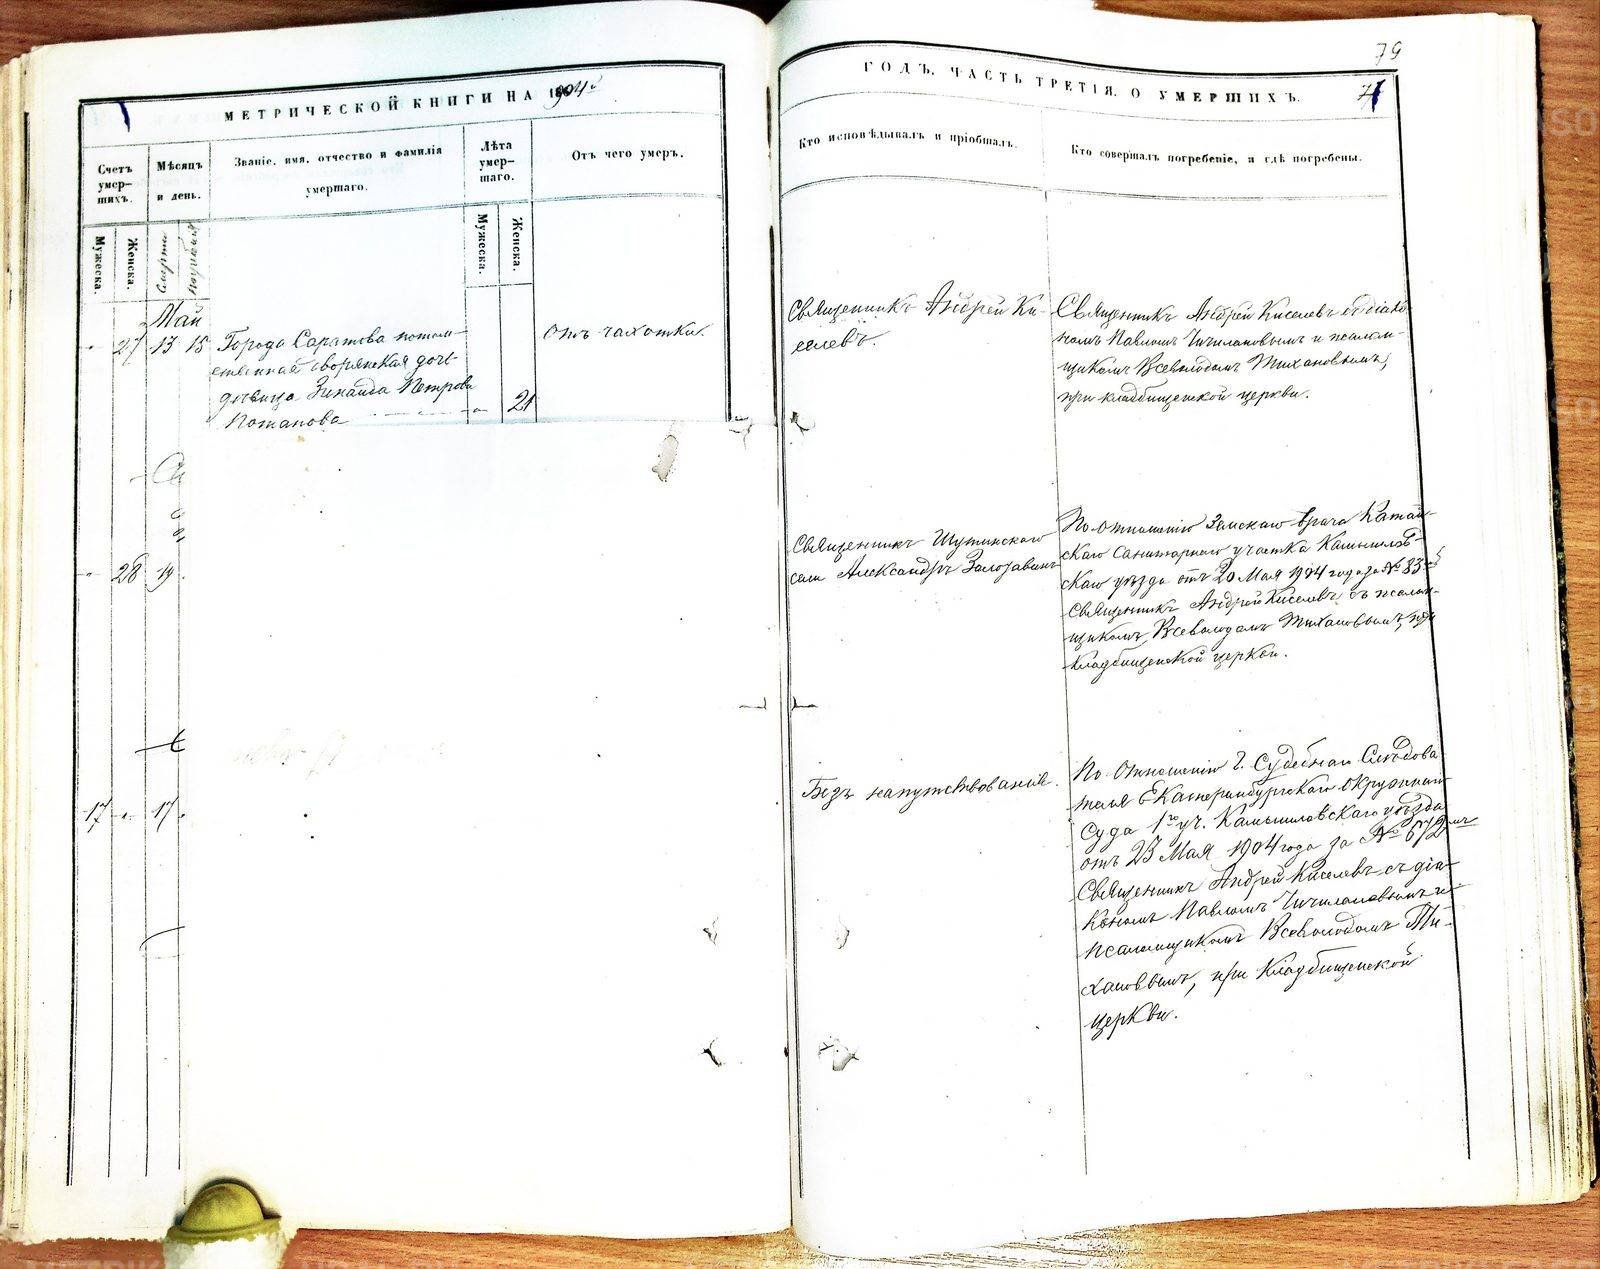 79
МЕТРИЧЕСКОЙ КНИГИ НА 1904й
ГОДЪ, ЧАСТЬ ТРЕТІЯ, О УМЕРШИХЪ.
Счетъ умер-
шихъ.
Мѣсяцъ
и день.
Званіе, имя, отчество и фамилія
умершаго.
Лѣта
умер-
шаго.
Отъ чего умеръ.
Кто исповѣдывалъ и пріобщалъ.
Кто совершалъ погребеніе, и гдѣ погребены.
Мужеска.
Женска.
Смерти
Погребенія
Мужеска.
Женска.
Май
- 27 13 15
Города Саратова потом-
ственная дворянская дочь
дѣвица Зинаида Петрова
Потапова
- 21
Отъ чахотки.
Священникъ Андрей Ки-
селевъ.
Священникъ Андрей Киселевъ съ діако-
номъ Павломъ Чичилановымъ и псалом-
щикомъ Всеволодомъ Тихановымъ,
при кладбищенской церкви.
- 28 19.
Священникъ Шутинскаго
села Александръ Золотавинъ
По отношенію Земскаго врача Катай-
скаго Санитарнаго участка Камышлов-
скаго уѣзда отъ 20 Мая 1904 года за № 83
Священникъ Андрей Киселевъ съ псалом-
щикомъ Всеволодомъ Тихановымъ, при
кладбищенской церкви.
17 - 17.
Безъ напутствованія.
По отношенію Г. Судебнаго Слѣдова-
теля Екатеринбургскаго Окружнаго
Суда 1го уч. Камышловскаго уѣзда
отъ 23 Мая 1904 года за № 672мъ
Священникъ Андрей Киселевъ съ діа-
кономъ Павломъ Чичилановымъ и
псаломщикомъ Всеволодомъ Ти-
хановымъ, при кладбищенской
церкви.